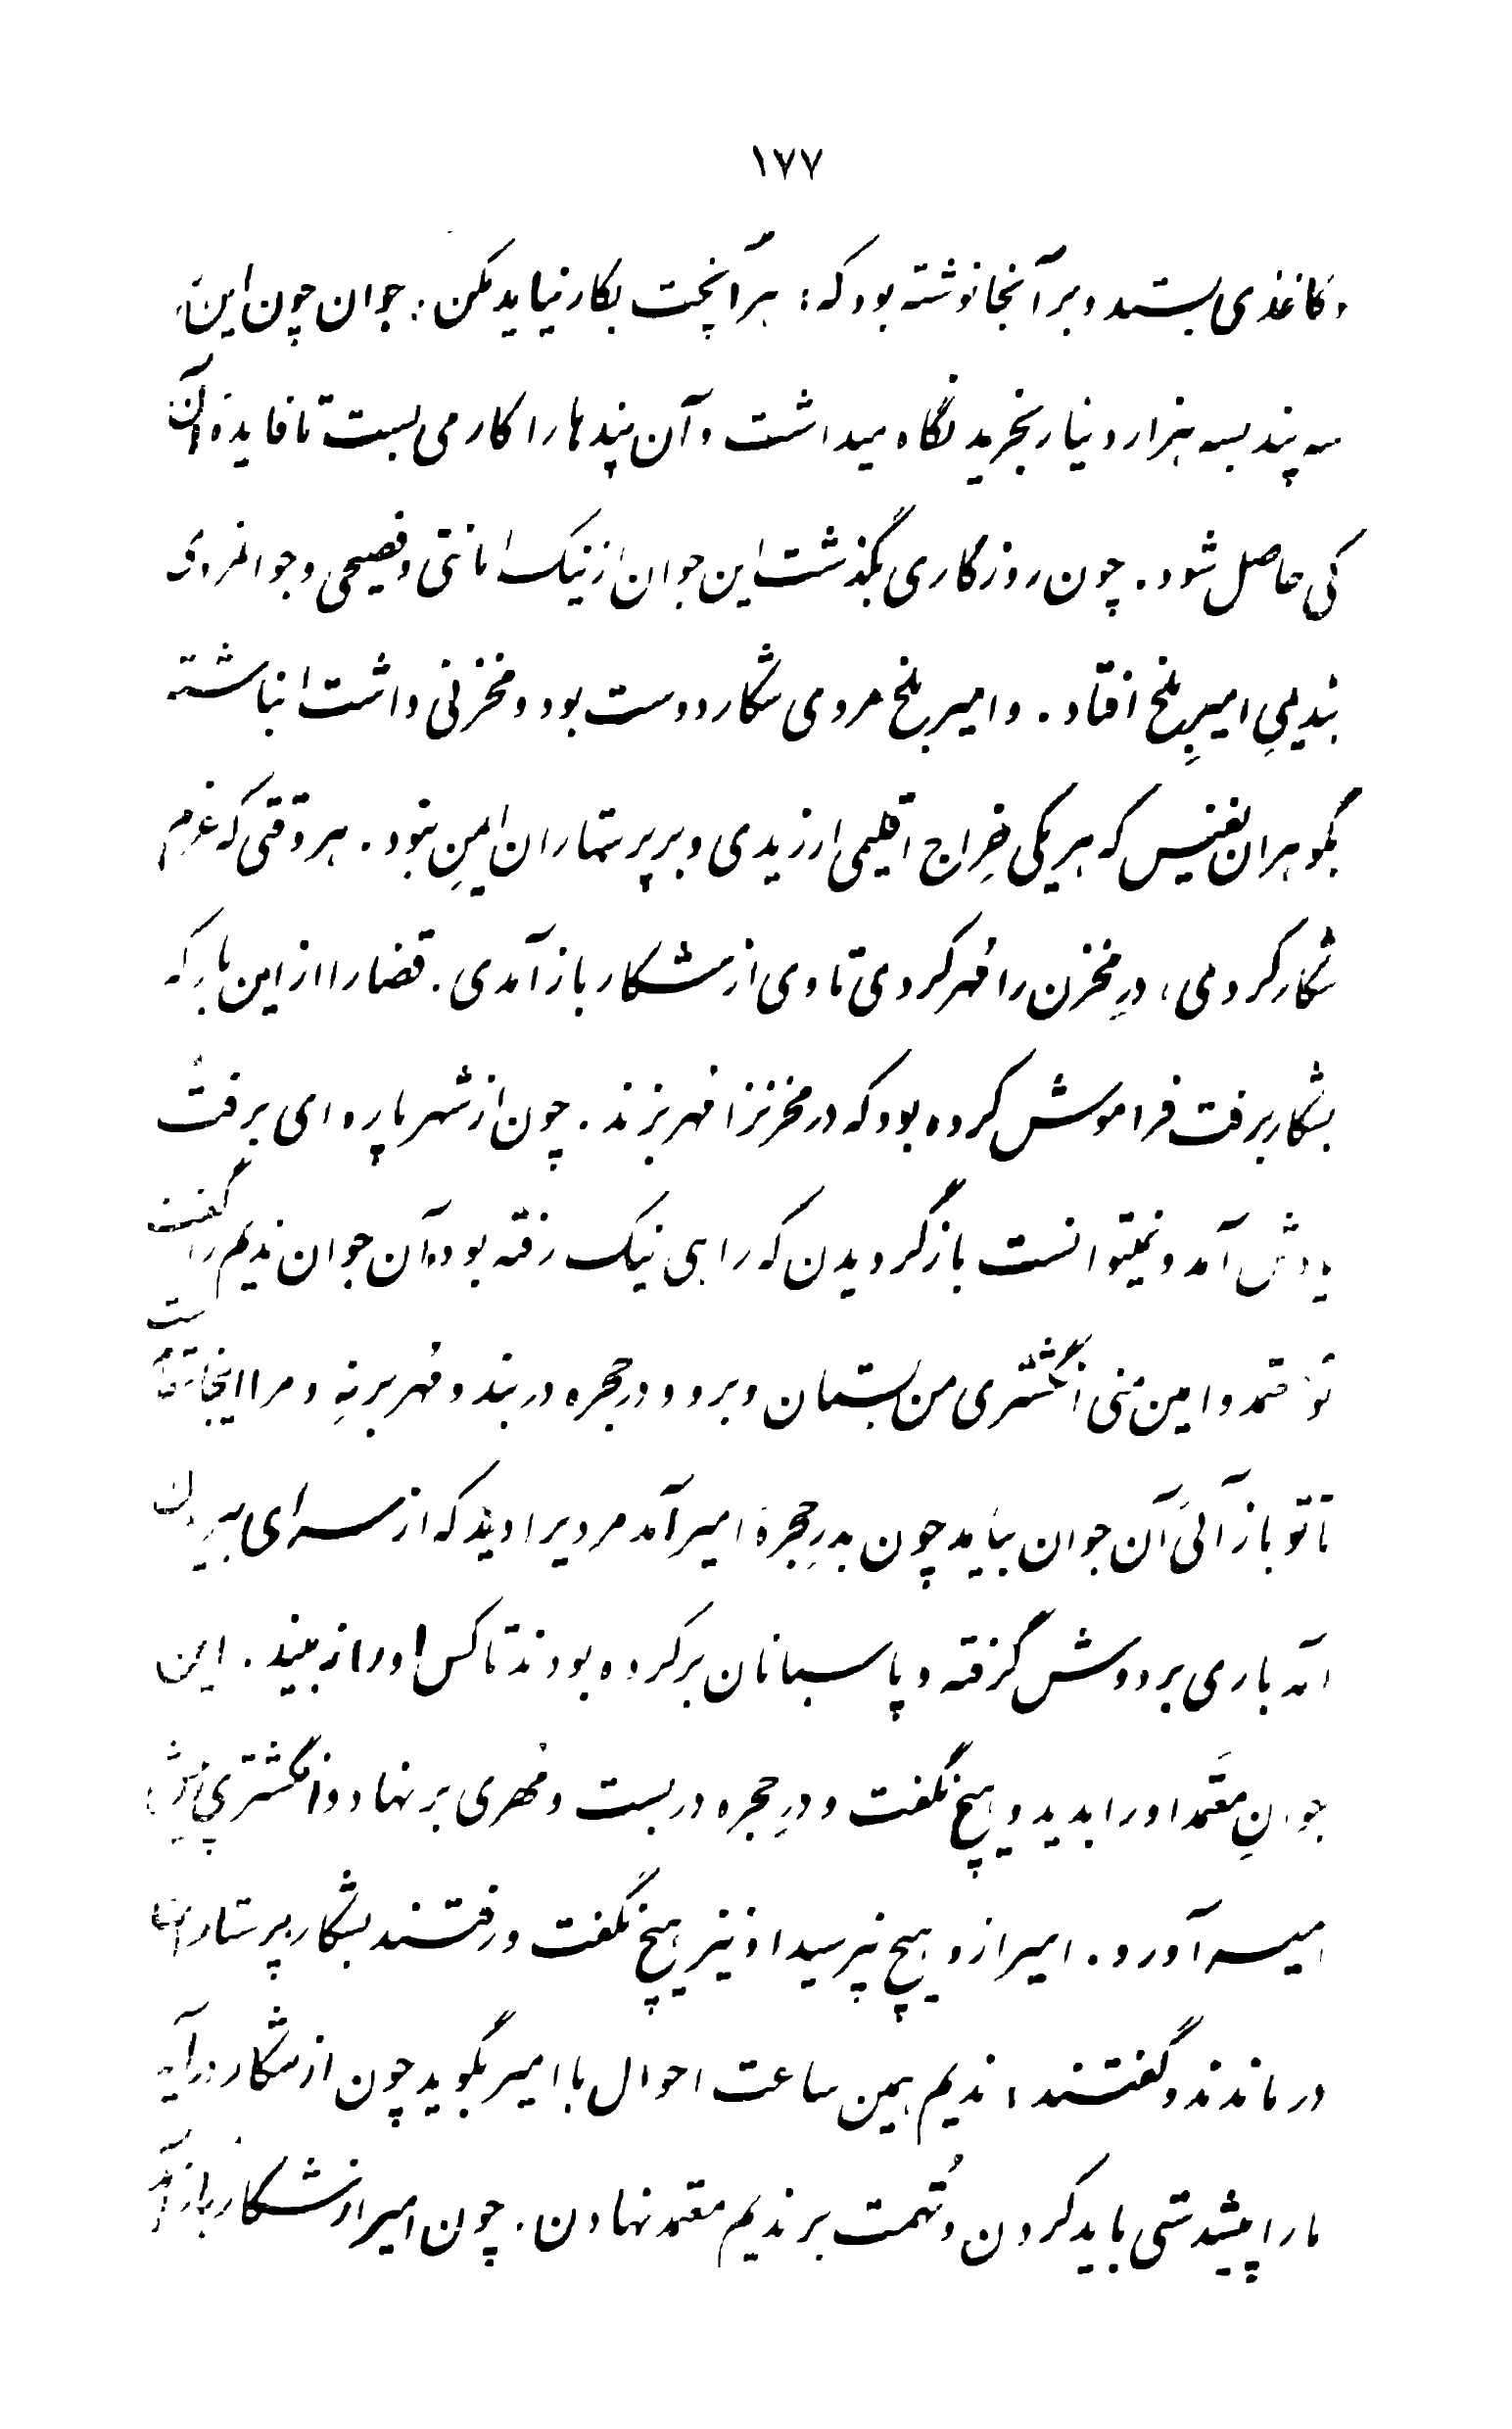 ۱۷۷
و کاغذی بستد و بر آنجا نوشته بود که: هر آنچت بکار نیاید مکن. جوان چون این
سه پند بسه هزار دینار بخرید نگاه میداشت و آن پندها را کار می بست تا فایدهٔ آن
کی حاصل شود. چون روزگاری بگذشت این جوان از نیک امانتی و فصیحی و جوانمردی
بندیمیِ امیرِ بلخ افتاد. و امیر بلخ مردی شکار دوست بود و مخزنی داشت انباشته
بگوهران نفیس که هر یکی خِراج اقلیمی ارزیدی و بر پرستاران ایمن نبود. هر وقتی که عزم
شکار کردمی، درِ مخزن را مُهر کردی تا وی از شکار باز آمدی. قضا را از این بار که
بشکار برفت فراموش کرده بود که در مخزنرا مُهر بزند. چون از شهر پاره ای برفت
یادش آمد و نمیتوانست باز گردیدن که راهی نیک رفته بود آن جوان ندیم را گفت
تو معتمد و امین منی انگشتری من بستان و برو و در حجره در بند و مُهر بر نِه و مرا اینجا توقفست
تا تو باز آئی آن جوان بیامد چون بدرِ حجرهٔ امیر آمد مردیرا دید که از سرای بیرون
آمد باری بر دوش گرفته و پاسبانان بر کرده بودند تا کس اورا نه بیند. این
جوانِ معتَمد اورا بدید و هیچ نگفت و درِ حجره در بست و مُهری بر نهاد و انگشتری پیش
امیر آورد. امیر ازو هیچ نپرسید او نیز هیچ نگفت و رفتند بشکار پرستاران
در ماندند و گفتند، ندیم همین ساعت احوال با امیر بگوید چون از شکار در آید
ما را پیشدستی باید کردن و تُهمت بر ندیم معتمد نهادن. چون امیر از شکار باز آمد